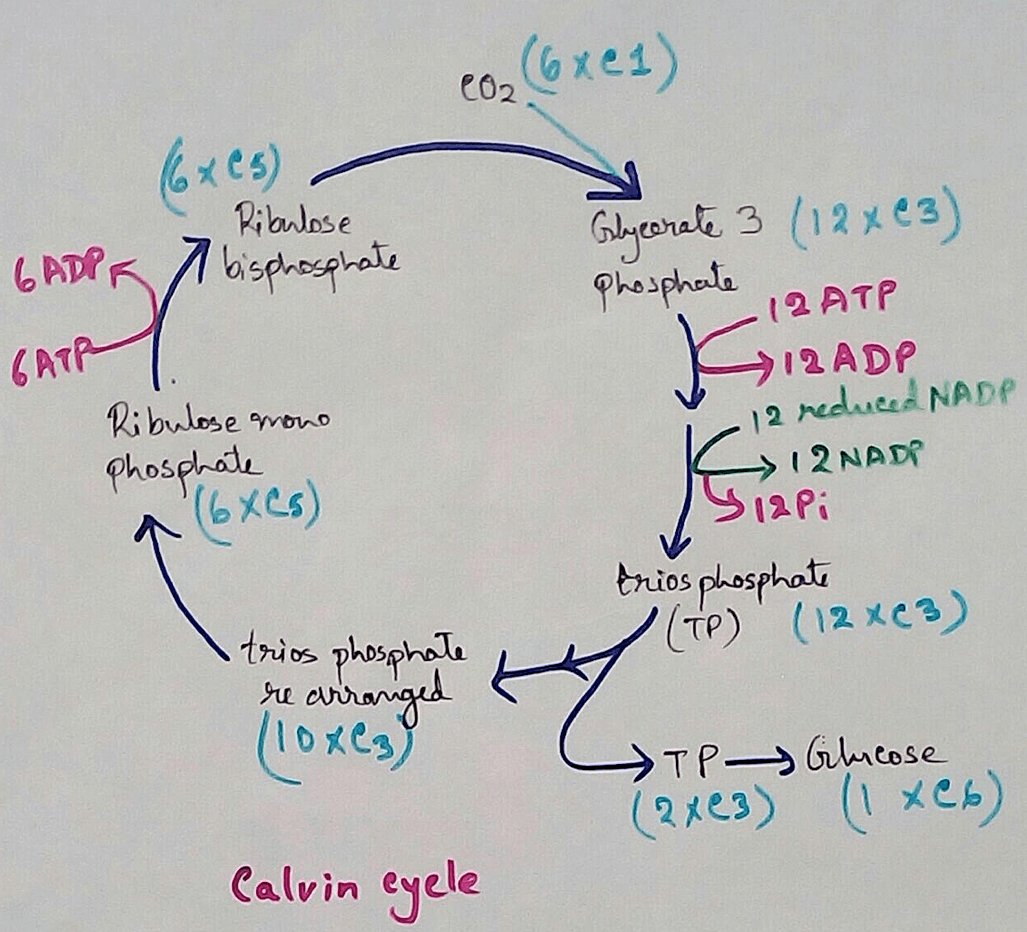 CO2 (6 x C1)
(6 x C5)
Ribulose
bisphosphate
Glycerate 3 (12 x C3)
phosphate
6ADP
6ATP
12ATP
12ADP
12 reduced NADP
12NADP
12Pi
Ribulose mono
phosphate
(6 x C5)
trios phosphate
(TP) (12 x C3)
trios phosphate
re arranged
(10 x C3)
TP → Glucose
(2 x C3) (1 x C6)
Calvin cycle